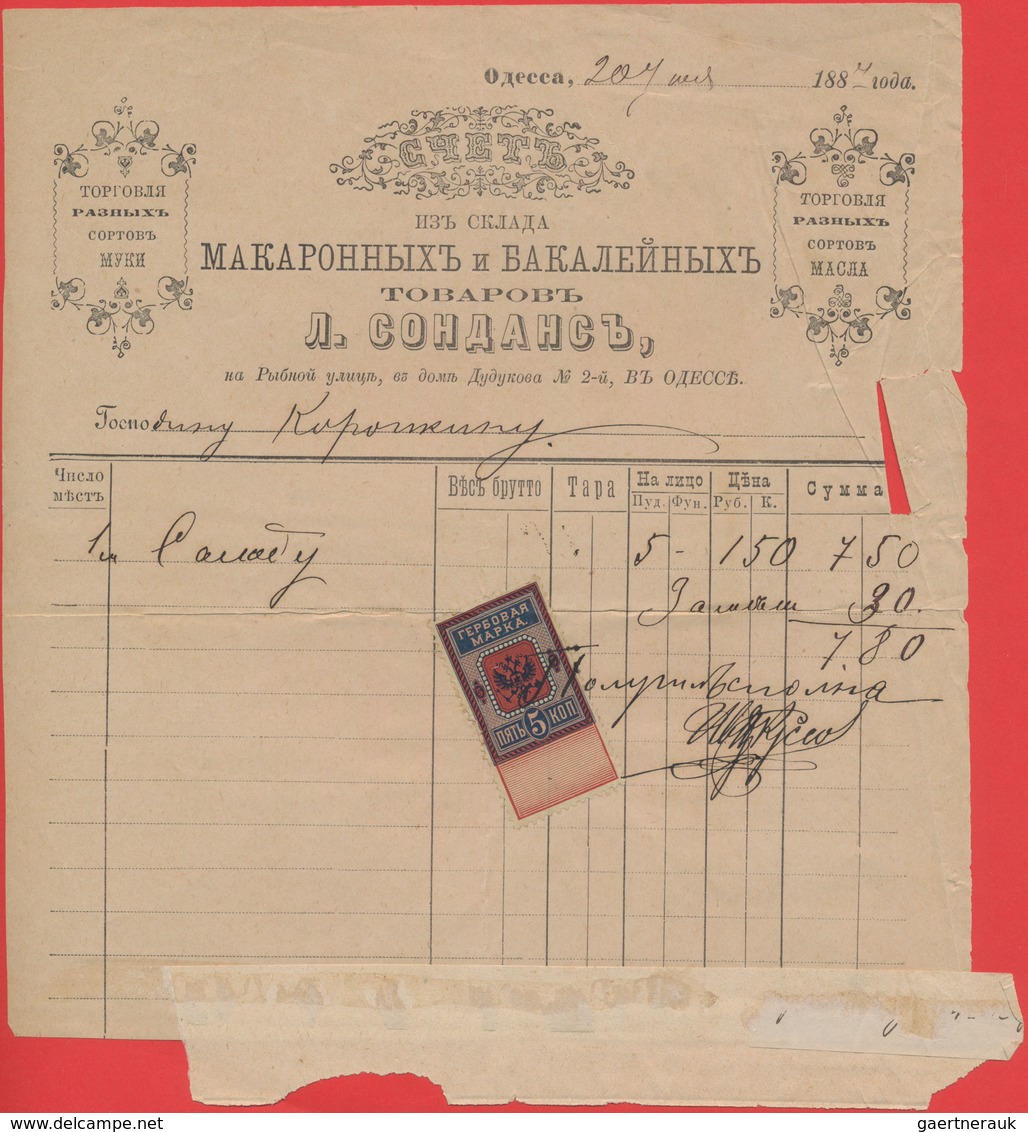 Одесса, 20 1887 года.
СЧЕТЪ
ИЗЪ СКЛАДА
МАКАРОННЫХЪ и БАКАЛЕЙНЫХЪ
ТОВАРОВЪ
Л. СОНДАНСЪ,
на Рыбной улицѣ, въ домѣ Дудукова № 2-й, ВЪ ОДЕССѢ.
ТОРГОВЛЯ
РАЗНЫХЪ
СОРТОВЪ
МУКИ
ТОРГОВЛЯ
РАЗНЫХЪ
СОРТОВЪ
МАСЛА
Господину Короткину
Число мѣстъ Вѣсъ брутто Тара На лицо Цѣна Сумма
Пуд. Фун. Руб. К.
1 5 - 1 50 7 50
30.
7 80
Получилъ сполна
ГЕРБОВАЯ
МАРКА.
5 5
ПЯТЬ 5 КОП
Posted by gaertnerauk
DELCAMPE.NET